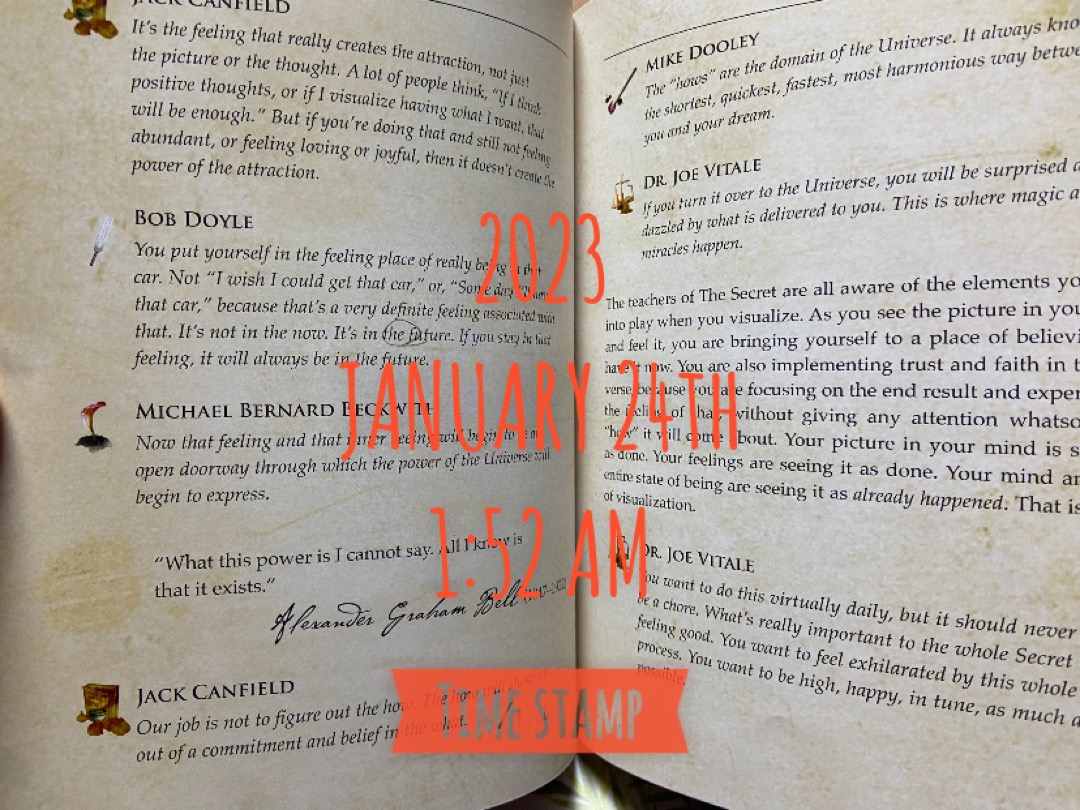 JACK CANFIELD
It's the feeling that really creates the attraction, not just
the picture or the thought. A lot of people think, "If I think
positive thoughts, or if I visualize having what I want, that
will be enough." But if you're doing that and still not feeling
abundant, or feeling loving or joyful, then it doesn't create the
power of the attraction.
BOB DOYLE
You put yourself in the feeling place of really being in that
car. Not "I wish I could get that car," or, "Some day I'll have
that car," because that's a very definite feeling associated with
that. It's not in the now. It's in the future. If you stay in that
feeling, it will always be in the future.
MICHAEL BERNARD BECKWITH
Now that feeling and that inner seeing will begin to be an
open doorway through which the power of the Universe will
begin to express.
"What this power is I cannot say. All I know is
that it exists."
Alexander Graham Bell (1847–1922)
JACK CANFIELD
Our job is not to figure out the how. The how will show up
out of a commitment and belief in the what.
MIKE DOOLEY
The "hows" are the domain of the Universe. It always kno
the shortest, quickest, fastest, most harmonious way betwe
you and your dream.
DR. JOE VITALE
If you turn it over to the Universe, you will be surprised a
dazzled by what is delivered to you. This is where magic a
miracles happen.
The teachers of The Secret are all aware of the elements yo
into play when you visualize. As you see the picture in you
and feel it, you are bringing yourself to a place of believi
have it now. You are also implementing trust and faith in t
verse, because you are focusing on the end result and exper
the feeling of that, without giving any attention whatso
"how" it will come about. Your picture in your mind is s
as done. Your feelings are seeing it as done. Your mind an
entire state of being are seeing it as already happened. That is
of visualization.
DR. JOE VITALE
You want to do this virtually daily, but it should never
be a chore. What's really important to the whole Secret
feeling good. You want to feel exhilarated by this whole
process. You want to be high, happy, in tune, as much a
possible.
2023
JANUARY 24TH
1:52 AM
TIME STAMP